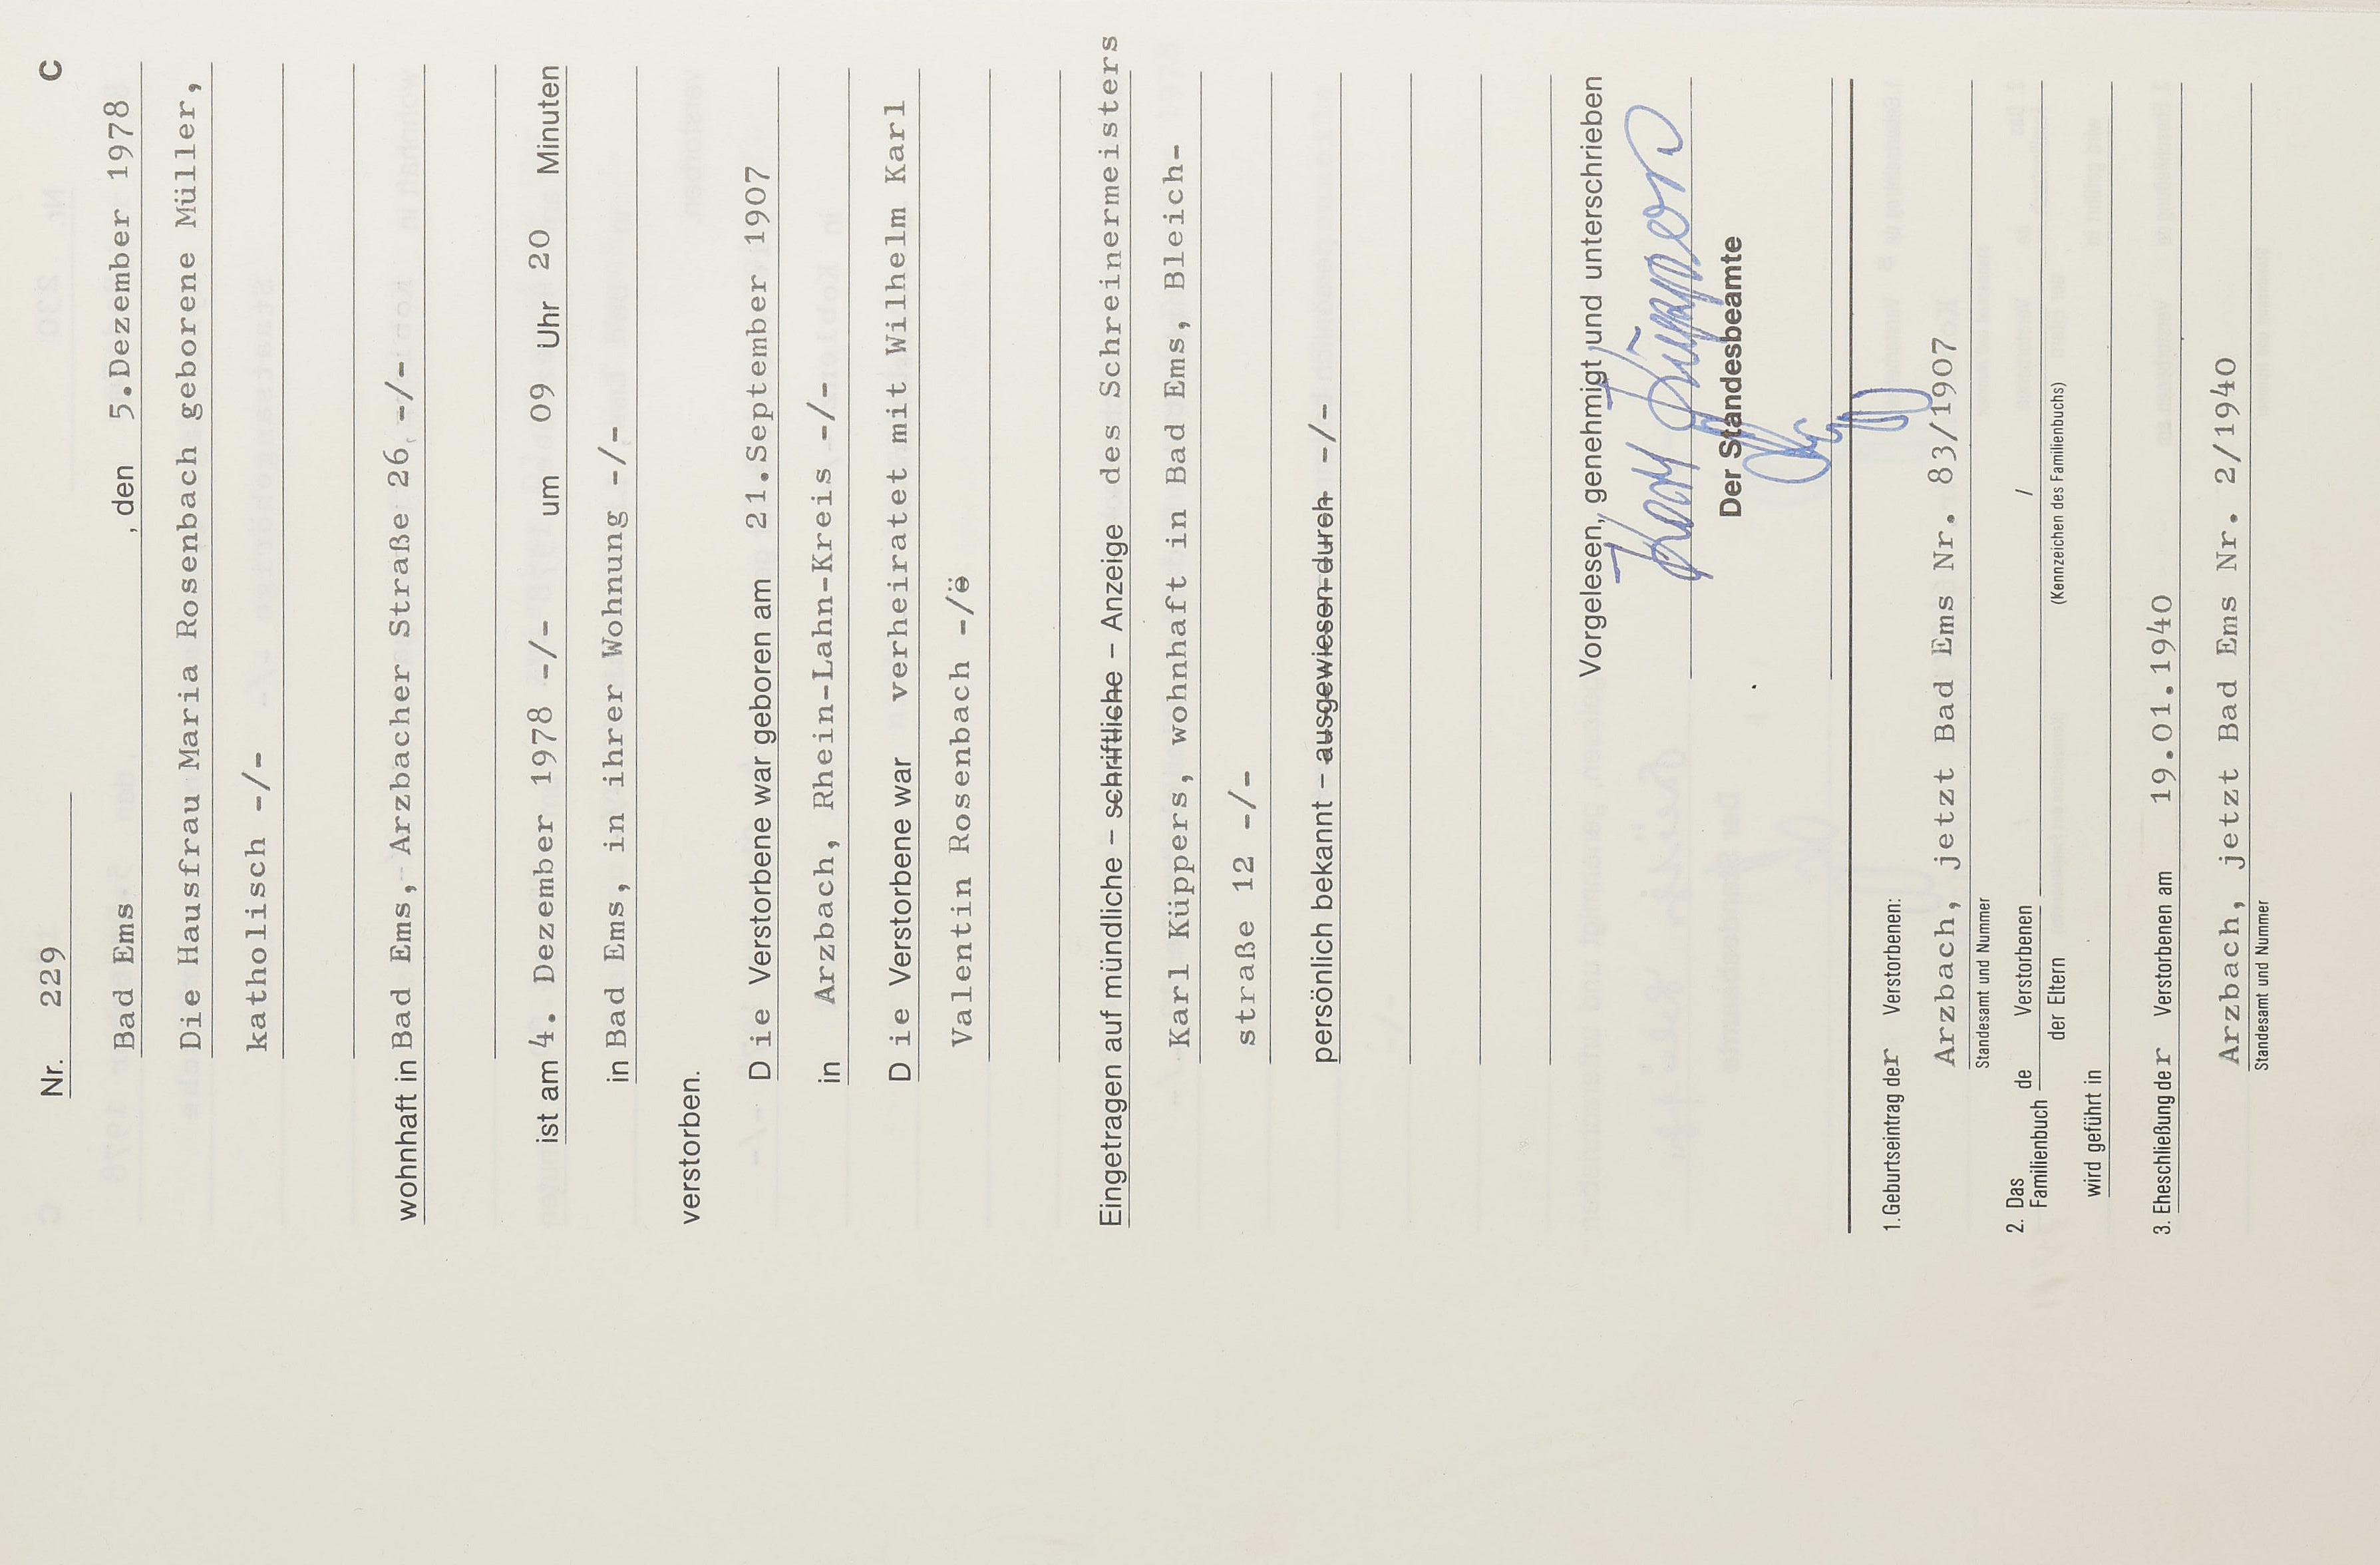 Nr. 229 C
Bad Ems , den 5.Dezember 1978
Die Hausfrau Maria Rosenbach geborene Müller,
katholisch -/-
wohnhaft in Bad Ems, Arzbacher Straße 26 -/-
ist am 4. Dezember 1978 -/- um 09 Uhr 20 Minuten
in Bad Ems, in ihrer Wohnung -/-
verstorben.
Die Verstorbene war geboren am 21.September 1907
in Arzbach, Rhein-Lahn-Kreis -/-
Die Verstorbene war verheiratet mit Wilhelm Karl
Valentin Rosenbach -/ë
Eingetragen auf mündliche – schriftliche – Anzeige des Schreinermeisters
Karl Küppers, wohnhaft in Bad Ems, Bleich-
straße 12 -/-
persönlich bekannt – ausgewiesen durch -/-
Vorgelesen, genehmigt und unterschrieben
Karl Küppers
Der Standesbeamte
1. Geburtseintrag der Verstorbenen:
Arzbach, jetzt Bad Ems Nr. 83/1907
Standesamt und Nummer
2. Das Familienbuch de Verstorbenen /
der Eltern (Kennzeichen des Familienbuchs)
wird geführt in
3. Eheschließung der Verstorbenen am 19.01.1940
Arzbach, jetzt Bad Ems Nr. 2/1940
Standesamt und Nummer